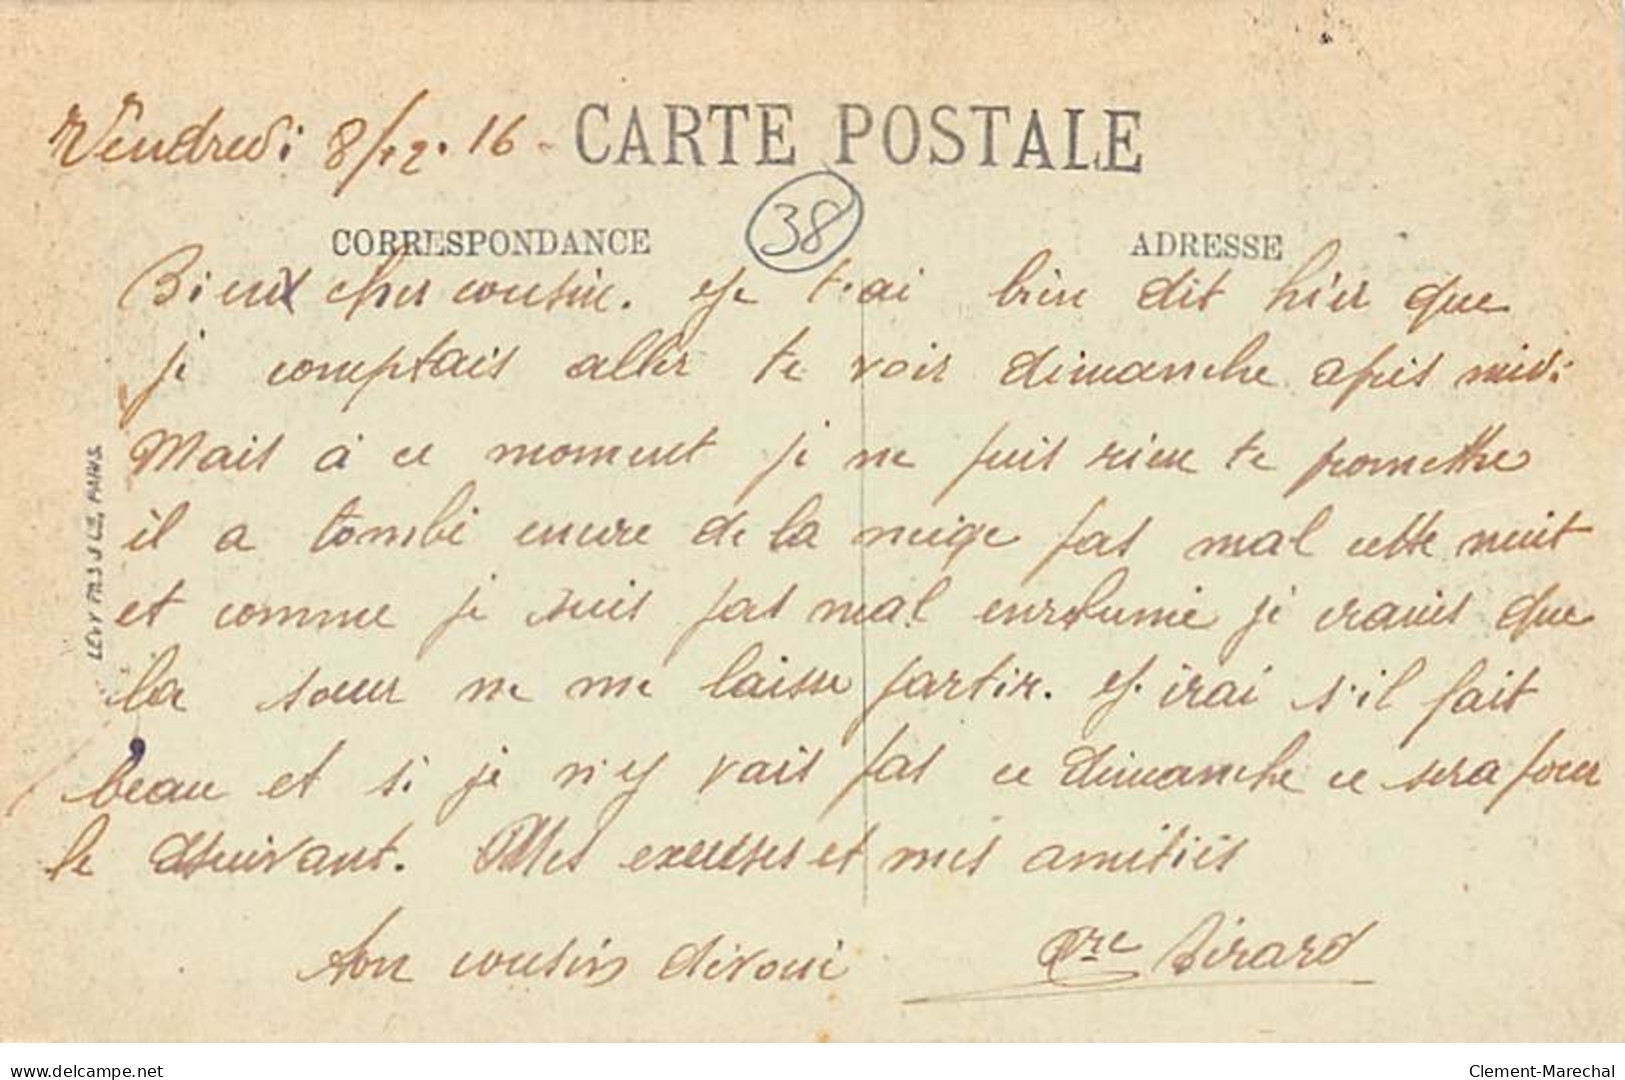 Vendredi 8/12.16 - CARTE POSTALE
38
CORRESPONDANCE
ADRESSE
Bieux cher cousin. Je t'ai bien dit hier que
je comptais aller te voir dimanche après midi
Mais à ce moment je ne puis rien te promettre
il a tombé encore de la neige pas mal cette nuit
et comme je suis pas mal enrhumé je crains que
la sœur ne me laisse partir. J'irai s'il fait
beau et si je n'y vais pas ce dimanche ce sera pour
le suivant. Mes excuses et mes amitiés
Ton cousin dévoué
Pre Girard
LEVY FILS & CIE, PARIS
delcampe.net
Clement-Marechal